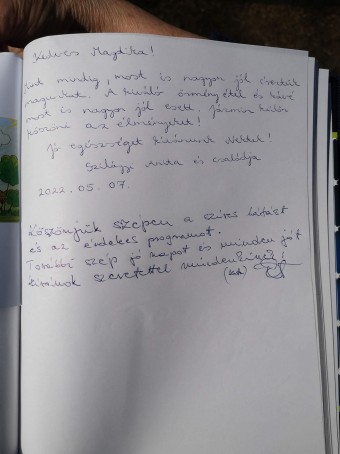 Kedves Magdika!
Mint mindig, most is nagyon jól éreztük
magunkat. A kiváló sütemény étel és kávé
most is nagyon jól esett. Jázmin külön
köszöni az élményeket!
Jó egészséget kívánunk Nektek!
Szilágyi Anita és családja
2022. 05. 07.
Köszönjük szépen a szíves látást
és az érdekes programot.
További szép jó napot és minden jót
kívánok szeretettel mindenkinek!